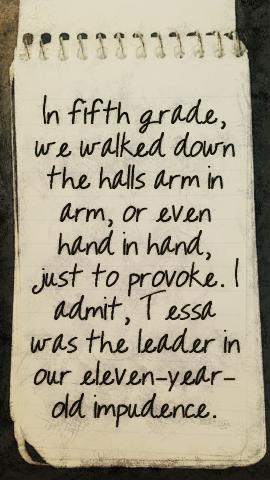 In fifth grade,
we walked down
the halls arm in
arm, or even
hand in hand,
just to provoke. I
admit, Tessa
was the leader in
our eleven-year-
old impudence.